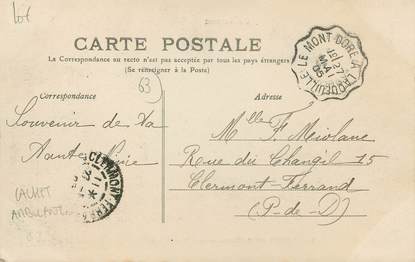 Lot
CARTE POSTALE
La Correspondance au recto n'est pas acceptée par tous les pays étrangers
(Se renseigner à la Poste)
LE MONT-DORE A LAQUEUILLE
27
MAI
05
63
Correspondance
Adresse
Souvenir de La
Haute
Mlle F. Miolane
Rue du Changil 15
Clermont-Ferrand
(P-de-D)
CLERMONT-FERRAND
CACHET
AMBULANT